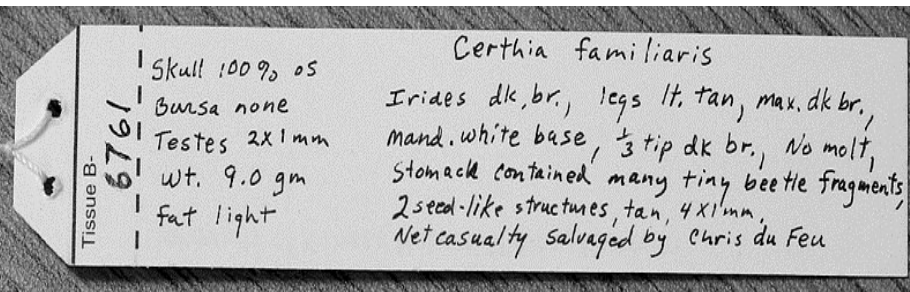 Tissue B-
6761
Skull 100% os
Bursa none
Testes 2x1mm
wt. 9.0 gm
fat light
Certhia familiaris
Irides dk, br., legs lt. tan, max. dk br.,
mand. white base, ⅓ tip dk br., No molt,
Stomach contained many tiny beetle fragments,
2 seed-like structures, tan, 4x1mm.
Net casualty salvaged by Chris du Feu